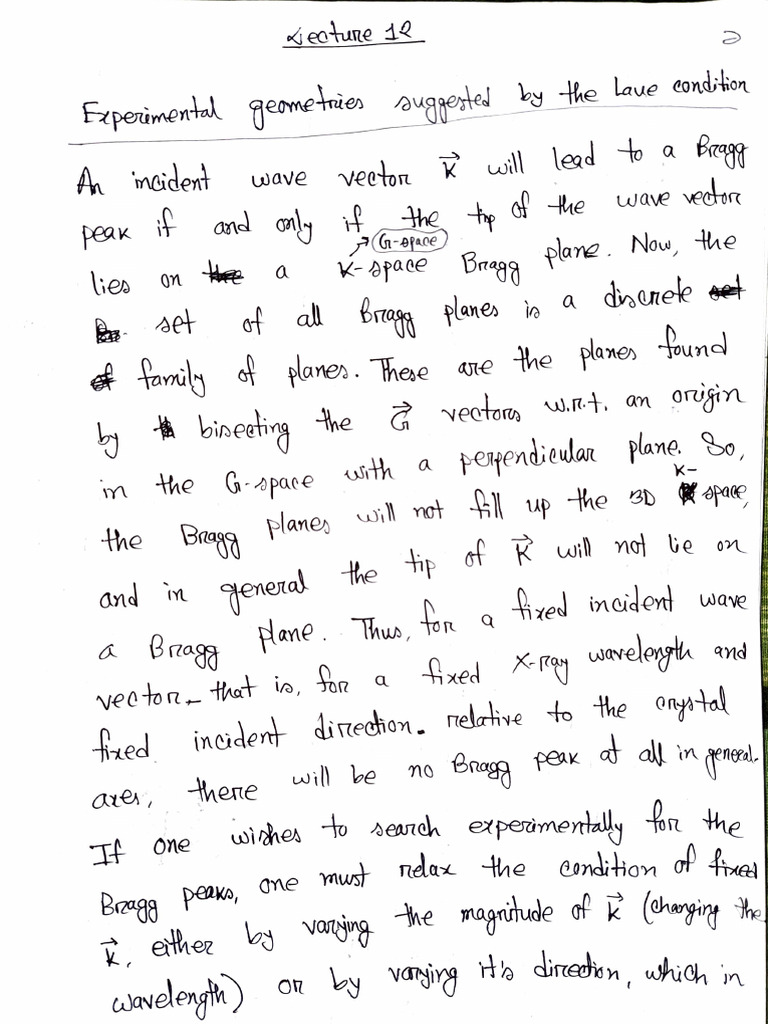 Lecture 12
2
Experimental geometries suggested by the Laue condition
An incident wave vector k⃗ will lead to a Bragg
peak if and only if the tip of the wave vector
G-space
lies on the a k-space Bragg plane. Now, the
set of all Bragg planes is a discrete set
of family of planes. These are the planes found
by bisecting the G⃗ vectors w.r.t. an origin
in the G-space with a perpendicular plane. So,
k-
the Bragg planes will not fill up the 3D space,
and in general the tip of k⃗ will not lie on
a Bragg plane. Thus, for a fixed incident wave
vector - that is, for a fixed X-ray wavelength and
fixed incident direction - relative to the crystal
axes, there will be no Bragg peak at all in general.
If one wishes to search experimentally for the
Bragg peaks, one must relax the condition of fixed
k⃗, either by varying the magnitude of k⃗ (changing the
wavelength) or by varying it's direction, which in